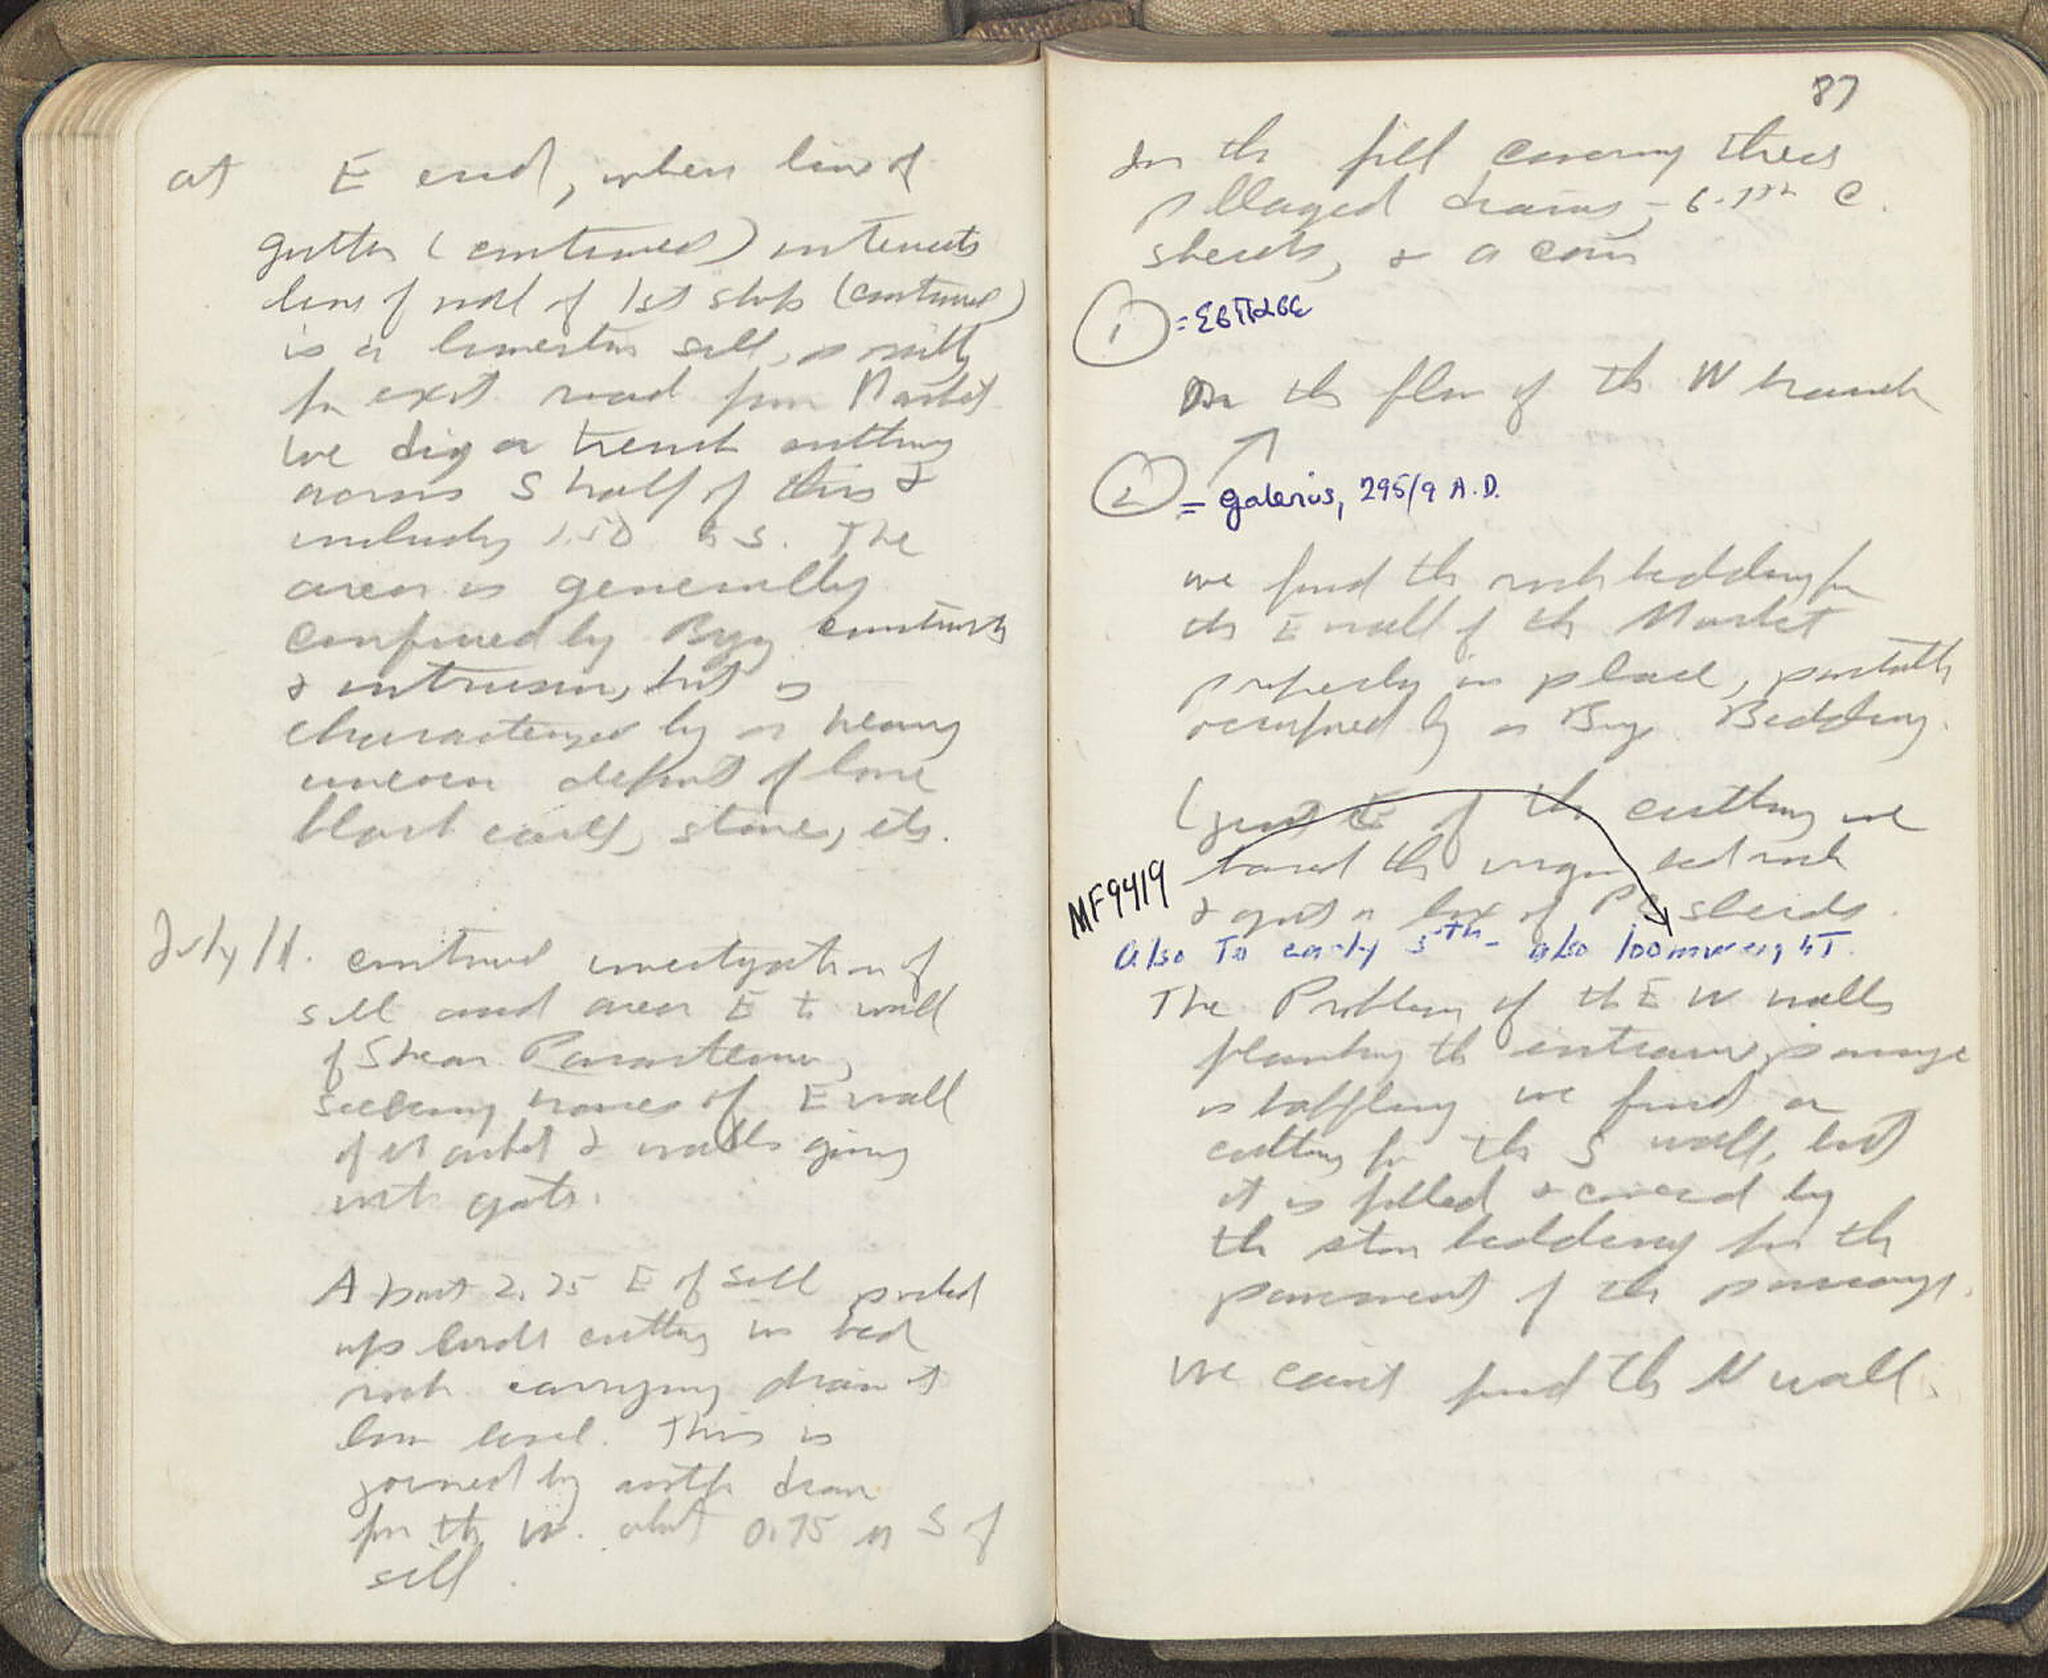 at E end, where line of
gutter (continued) intersects
line of wall of 1st shop (continued)
is a limestone sill, possibly
for exit road from Market
we dig a trench cutting
across S half of this &
including 1.50 to S. The
area is generally
confused by Byz. constructs
& intrusion, but is
characterized by a heavy
uneven deposit of loose
black earth, stones, etc.
July 11. continued investigation of
sill and area E to wall
of
seeking traces of E wall
of Market & walls going
with gate.
About 2.75 E of sill picked
up cutting in bed
rock carrying drain at
low level. This is
joined by another drain
from the W. about 0.75 m S of
sill.
87
In the fill covering these
pillaged drains, - 6-7th C.
sherds, & a coin
1 =
On the floor of the W branch
2 = Galerius, 295/9 A.D.
we find the rock bedding for
the E wall of the Market
properly in place, partially
occupied by a Byz. Bedding.
(Just E of this cutting we
the virgin bed rock
& got a box of PG sherds.
MF9419
also To early 5th - also loomweight.
The Problem of the E W walls
flanking the entrance passage
is baffling we find a
cutting for the S wall, but
it is filled & covered by
the stone bedding for the
pavement of the passage.
We can't find the N wall.